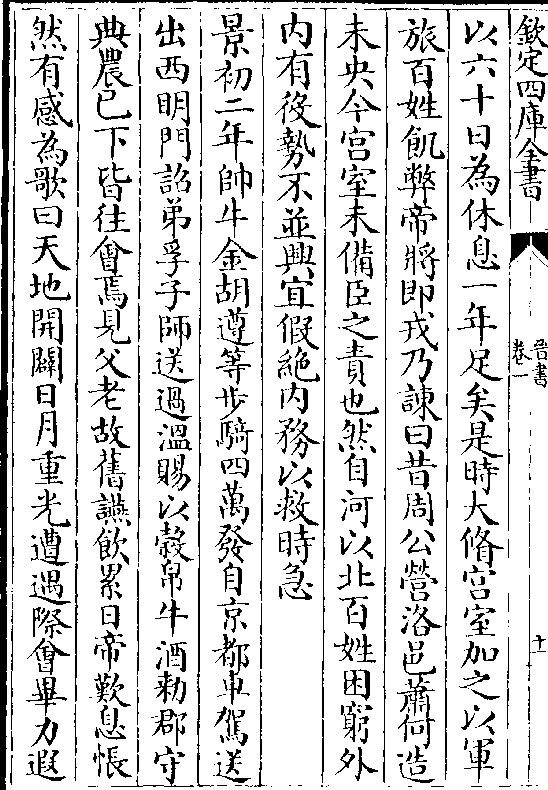 欽定四庫全書
晉書
卷一
十一
以六十日為休息一年足矣是時大脩宫室加之以軍
旅百姓飢弊帝將即戎乃諫曰昔周公營洛邑蕭何造
未央今宫室未備臣之責也然自河以北百姓困窮外
内有役勢不並興宜假絶内務以救時急
景初二年帥牛金胡遵等步騎四萬發自京都車駕送
出西明門詔弟孚子師送過溫賜以穀帛牛酒勅郡守
典農已下皆往會焉見父老故舊讌飲累日帝歎息悵
然有感為歌曰天地開闢日月重光遭遇際會畢力遐